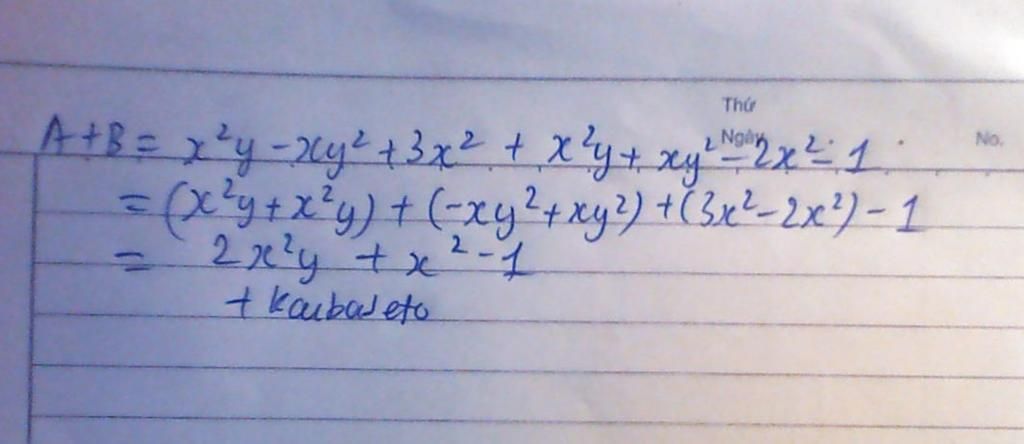 Thứ
Ngày
No.
A+B = x²y - xy² + 3x² + x²y + xy² - 2x² - 1
= (x²y + x²y) + (-xy² + xy²) + (3x² - 2x²) - 1
= 2x²y + x² - 1
+